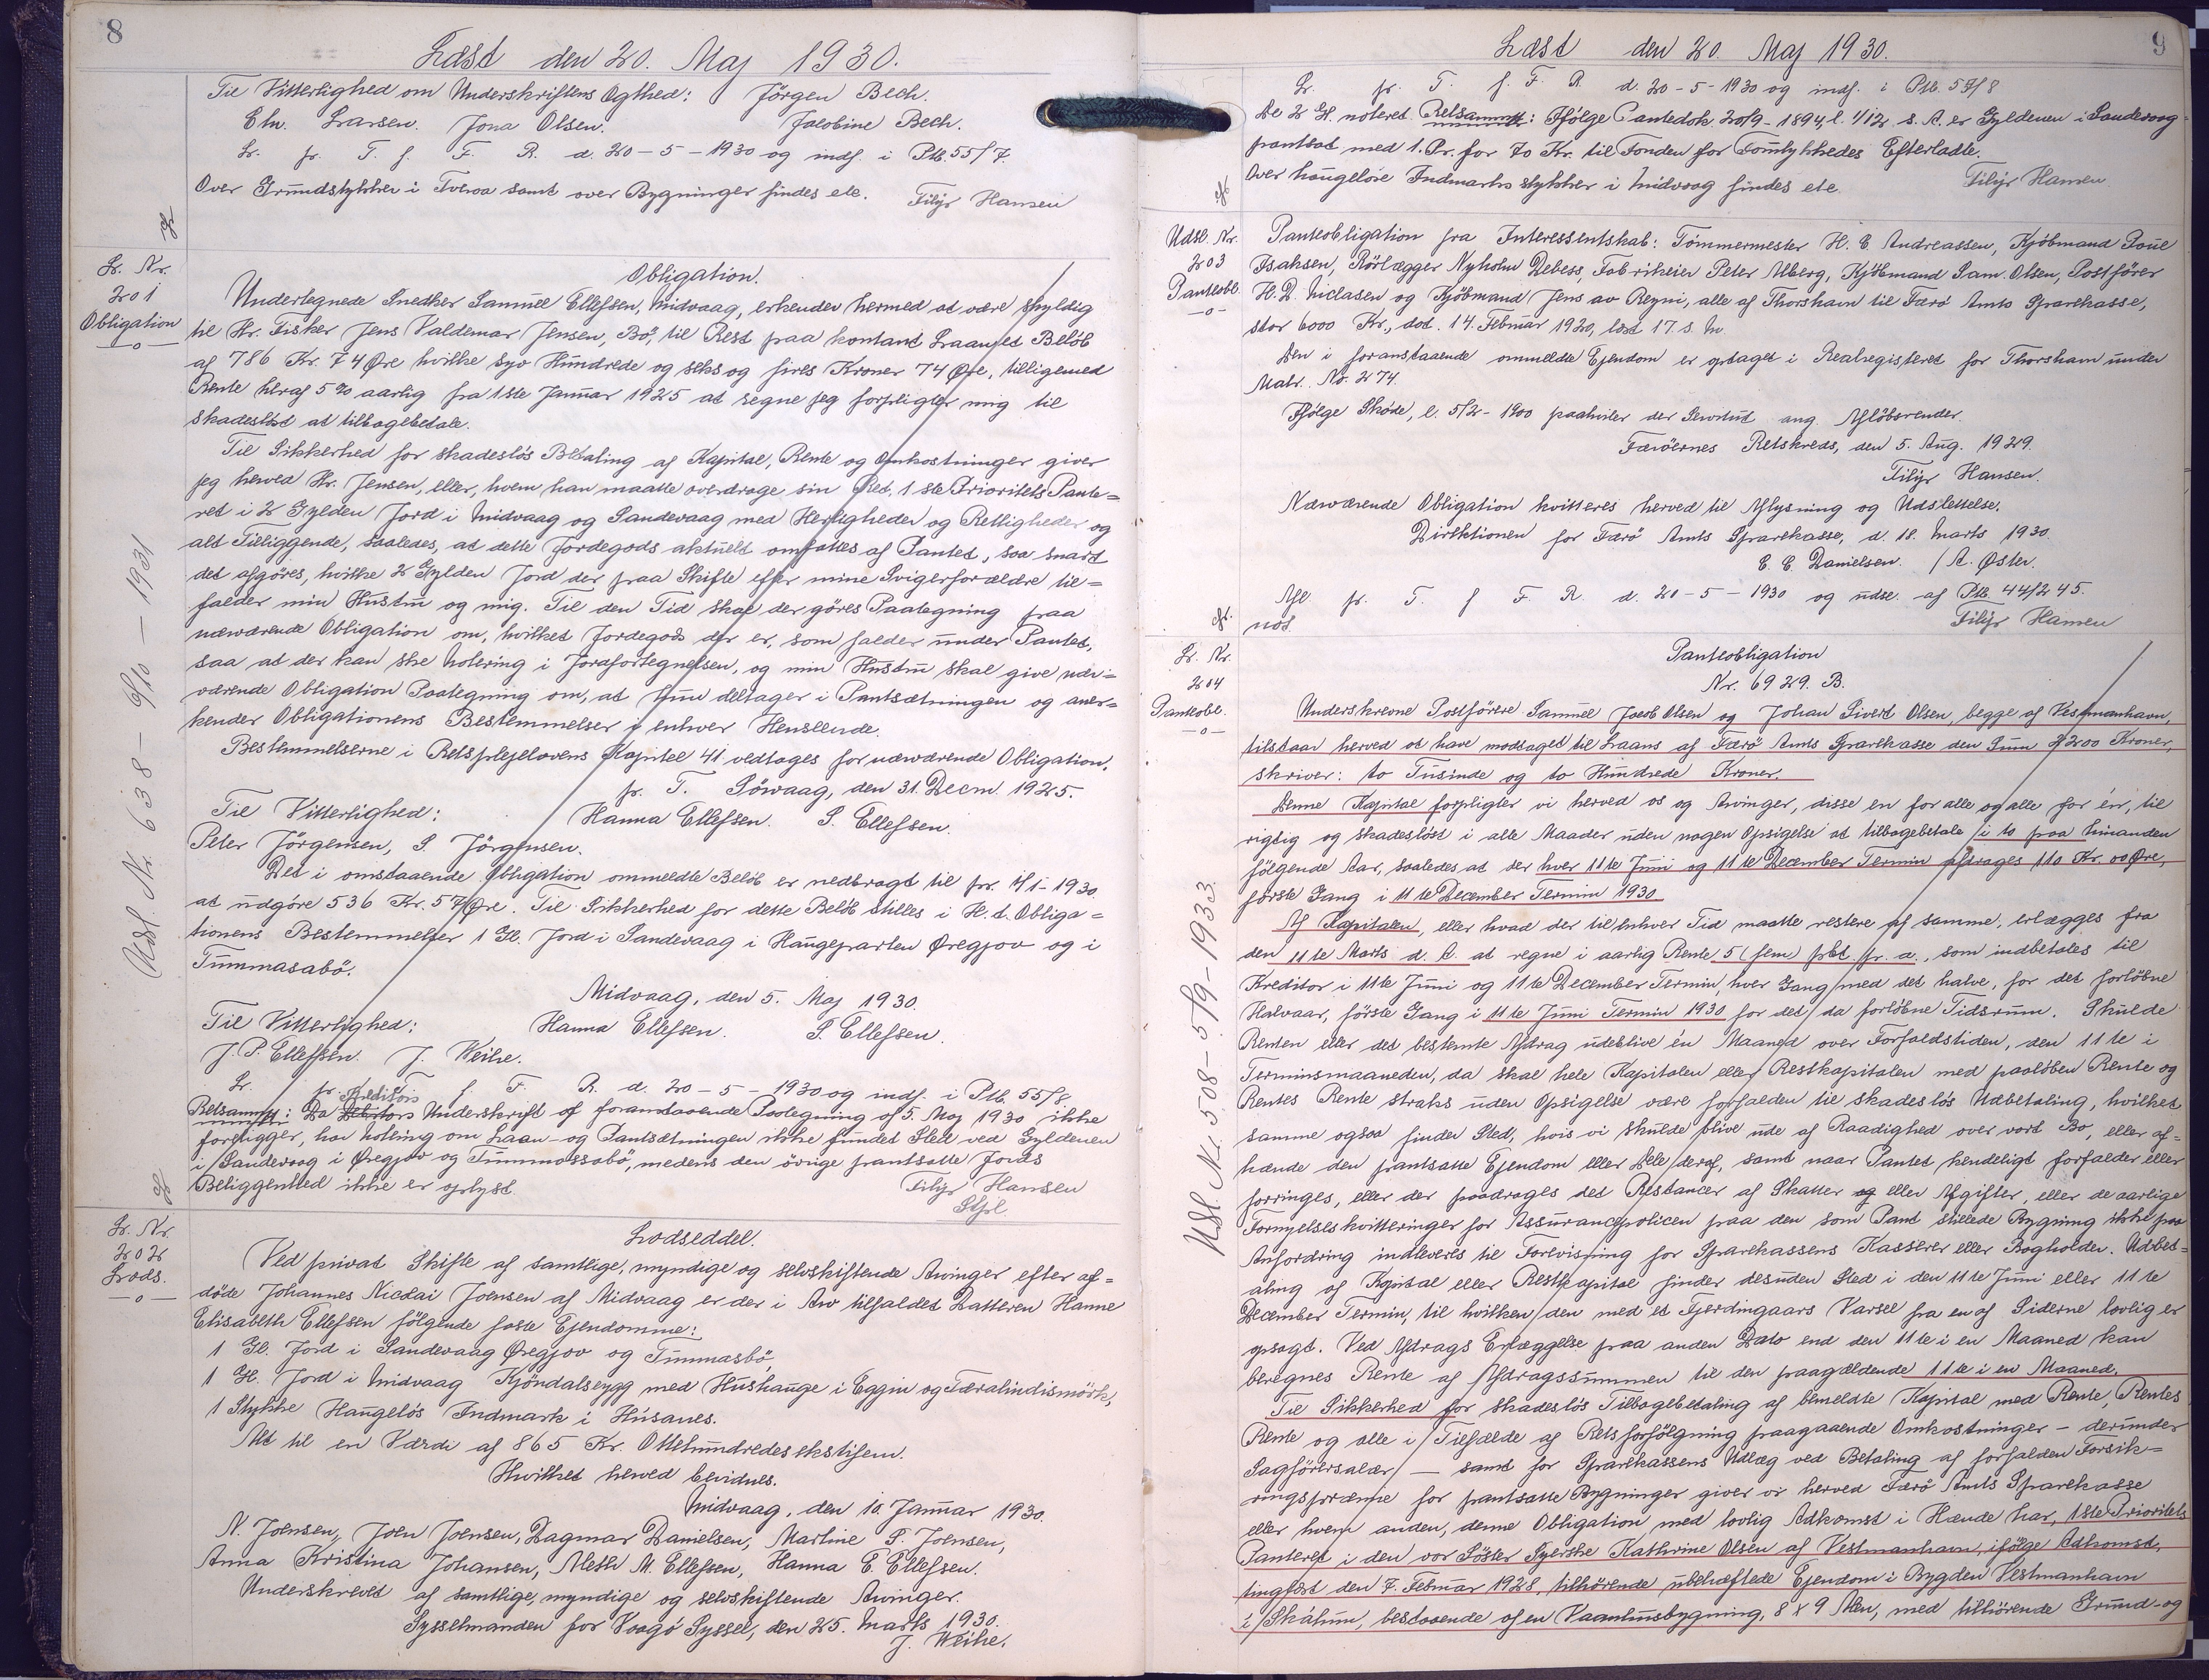 8
Læst den 20. Maj 1930.
Til Vitterlighed om Underskriftens Ægthed: Jörgen Bech.
Chr. Larsen. Jona Olsen. Jacobine Bech.
Lr. pr. T. f. F. R. d. 20-5-1930 og indf. i Ptb. 55/7.
Over Grundstykker i Tveraa samt over Bygninger findes ele. Filip Hansen
Lr. Nr.
201
Obligation
—o—
Udsl. Nr. 638 - 9/10 - 1931
Obligation.
Undertegnede Snedker Samuel Ellefsen, Midvaag, erkender hermed at være skyldig
til Hr. Fisker Jens Valdemar Jensen, Bö, til Rest paa kontant Laan et Belöb
af 786 Kr. 74 Øre hvilke syv Hundrede og seks og firs Kroner 74 Øre, tilligemed
Rente heraf 5% aarlig fra 1ste Januar 1925 at regne jeg forpligter mig til
skadeslöst at tilbagebetale.
Til Sikkerhed for skadeslös Betaling af Kapital, Rente og Omkostninger giver
jeg herved Hr. Jensen, eller, hvem han maatte overdrage sin Ret, 1ste Prioritets Pante=
ret i 2 Gylden Jord i Midvaag og Sandevaag med Herligheder og Rettigheder og
alt Tilliggende, saaledes, at dette Jordegods aktuelt omfattes af Pantet, saa snart
det afgöres, hvilke 2 Gylden Jord der paa Skifte efter mine Svigerforældre til=
falder min Hustru og mig. Til den Tid skal der göres Paategning paa
nærværende Obligation om, hvilket Jordegods der er, som falder under Pantet,
saa at der kan ske Notering i Jorafortegnelsen, og min Hustru skal give nær=
værende Obligation Paategning om, at hun deltager i Pantsætningen og aner=
kender Obligationens Bestemmelser i enhver Henseende.
Bestemmelserne i Retsplejelovens Kapitel 41 vedtages for nærværende Obligation.
p. t. Sövaag, den 31. Decm. 1925.
Til Vitterlighed: Hanna Ellefsen. S. Ellefsen.
Peter Jörgensen, S. Jörgensen.
Det i omstaaende Obligation ommeldte Belöb er nedbragt til pr. 1/1-1930
at udgöre 536 Kr. 57 Øre. Til Sikkerhed for dette Belöb stilles i H. t. Obliga=
tionens Bestemmelser 1 Gl. Jord i Sandevaag i Haugeparten Øregjov og i
Tummasabö.
Midvaag, den 5. Maj 1930.
Til Vitterlighed: Hanna Ellefsen. S. Ellefsen.
J. P. Ellefsen. J. Weihe.
Lr. pr. T. f. F. R. d. 20-5-1930 og indf. i Ptb. 55/8
Kreditors
Retsanm: Da Debitors Underskrift af foranstaaende Paategning af 5. Maj 1930 ikke
foreligger, har Notering om Laan- og Pantsætningen ikke fundet Sted ved Gyldenen
i Sandevaag i Øregjov og Tummassabö, medens den övrige pantsatte Jords
Beliggenhed ikke er oplyst. Filip Hansen
Stfl.
Lr. Nr.
202
Lods.
—o—
Lodseddel.
Ved privat Skifte af samtlige, myndige og selvskiftende Arvinger efter af=
döde Johannes Nicolai Joensen af Midvaag er der i Arv tilfaldet Datteren Hanne
Elisabeth Ellefsen fölgende faste Ejendomme:
1 Gl. Jord i Sandevaag Øregjov og Tummasbö,
1 Gl. Jord i Midvaag Kjöndalsrygg med Hushauge i Eggin og Tæralindismörk,
1 Stykke Haugelös Indmark i Húsanes.
Alt til en Værdi af 865 Kr. Ottehundredesekstifem.
Hvilket herved bevidnes.
Midvaag, den 10. Januar 1930.
N. Joensen, Joen Joensen, Dagmar Danielsen, Martine S. Joensen,
Anna Kristina Johansen, Meth M. Ellefsen, Hanna E. Ellefsen.
Underskrevet af samtlige, myndige og selvskiftende Arvinger.
Sysselmanden for Vaagö Syssel, den 25. Marts 1930.
J. Weihe.
9
Læst den 20. Maj 1930.
Lr. pr. T. f. F. R. d. 20-5-1930 og indf. i Ptb. 55/8
De 2 Gl. noteret. Retsanm: Ifölge Pantedok. 20/9-1894, l. 1/12 s. A. er Gyldenen i Sandevaag
pantsat med 1. Pr. for 70 Kr. til Fonden for Forulykkedes Efterladte.
Over haugelöse Indmarksstykker i Midvaag findes ele. Filip Hansen
Udsl. Nr.
203
Panteobl.
—o—
Panteobligation fra Interessentskab: Tömmermester H. C. Andreassen, Kjöbmand Poul
Isaksen, Rörlægger Nyholm Debess, Fabrikeier Peter Alberg, Kjöbmand Sam. Olsen, Postförer
H. D. Niclasen og Kjöbmand Jens av Reyni, alle af Thorshavn til Færö Amts Sparekasse,
stor 6000 Kr., dat. 14. Februar 1920, læst 17. s. M.
Den i foranstaaende ommeldte Ejendom er optaget i Realregisteret for Thorshavn under
Matr. No. 274.
Ifölge Sköde, l. 5/2-1900 paahviler der Servitut ang. Aflöbsrender.
Færöernes Retskreds, den 5. Aug. 1929.
Filip Hansen.
Nærværende Obligation kvitteres herved til Aflysning og Udslettelse.
Direktionen for Færö Amts Sparekasse, d. 18. Marts 1930.
C. C. Danielsen. / A. Øster.
Afl. pr. T. f. F. R. d. 20-5-1930 og udsl. af Ptb. 44/245.
not. Filip Hansen
Lr. Nr.
204
Panteobl.
—o—
Udsl. Nr. 508 - 5/9 - 1933
Panteobligation
Nr. 6929. B.
Underskrevne Postförere Samuel Jacob Olsen og Johan Sivert Olsen, begge af Vestmanhavn,
tilstaar herved at have modtaget til Laans af Færö Amts Sparekasse den Sum 2200 Kroner,
skriver: to Tusinde og to Hundrede Kroner.
Denne Kapital forpligter vi herved os og Arvinger, disse en for alle og alle for én, til
rigtig og skadeslöst i alle Maader uden nogen Opsigelse at tilbagebetale i to paa hinanden
fölgende Aar, saaledes at der hver 11te Juni og 11te December Termin afdrages 110 Kr. 00 Øre,
förste Gang i 11te December Termin 1930.
Af Kapitalen, eller hvad der til enhver Tid maatte restere af samme, erlægges fra
den 11te Marts d. A. at regne i aarlig Rente 5 (fem) pCt. pr. a., som indbetales til
Kreditor i 11te Juni og 11te December Termin, hver Gang med det halve, for det forlöbne
Halvaar, förste Gang i 11te Juni Termin 1930 for det da forlöbne Tidsrum. Skulde
Renten eller det bestemte Afdrag udeblive én Maaned over Forfaldstiden, den 11te i
Terminsmaaneden, da skal hele Kapitalen eller Restkapitalen med paalöben Rente og
Rentes Rente straks uden Opsigelse være forfalden til skadeslös Udbetaling, hvilket
samme ogsaa finder Sted, hvis vi skulde blive ude af Raadighed over vort Bo, eller af=
hænde den pantsatte Ejendom eller Dele deraf, samt naar Pantet kendeligt forfalder eller
forringes, eller der paadrages det Restancer af Skatter og eller Afgifter, eller de aarlige
Fornyelseskvitteringer for Assurancepolicen paa den som Pant stillede Bygning ikke paa
Anfordring indleveres til Forevisning for Sparekassens Kasserer eller Bogholder. Udbet=
aling af Kapital eller Restkapital finder desuden Sted i den 11te Juni eller 11te
December Termin, til hvilken den med et Fjerdingaars Varsel fra en af Siderne lovlig er
opsagt. Ved Afdrags Erlæggelse paa anden Dato end den 11te i en Maaned kan
beregnes Rente af Afdragssummen til den paagældende 11te i en Maaned.
Til Sikkerhed for skadeslös Tilbagebetaling af bemeldte Kapital med Rente, Rentes
Rente og alle i Tilfælde af Retsforfölgning paagaaende Omkostninger — derunder
Sagförersalær — samt for Sparekassens Udlæg ved Betaling af forfalden Forsik=
ringspræmie for pantsatte Bygninger giver vi herved Færö Amts Sparekasse
eller hvem anden, denne Obligation med lovlig Adkomst i Hænde har, 1ste Prioritets
Panteret i den vor Söster Syerske Kathrine Olsen af Vestmanhavn, ifölge Adkomst,
tinglæst den 7. Februar 1928, tilhörende ubehæftede Ejendom i Bygden Vestmanhavn
i Skálum, bestaaende af en Vaaningsbygning, 8 x 9 Alen, med tilhörende Grund- og